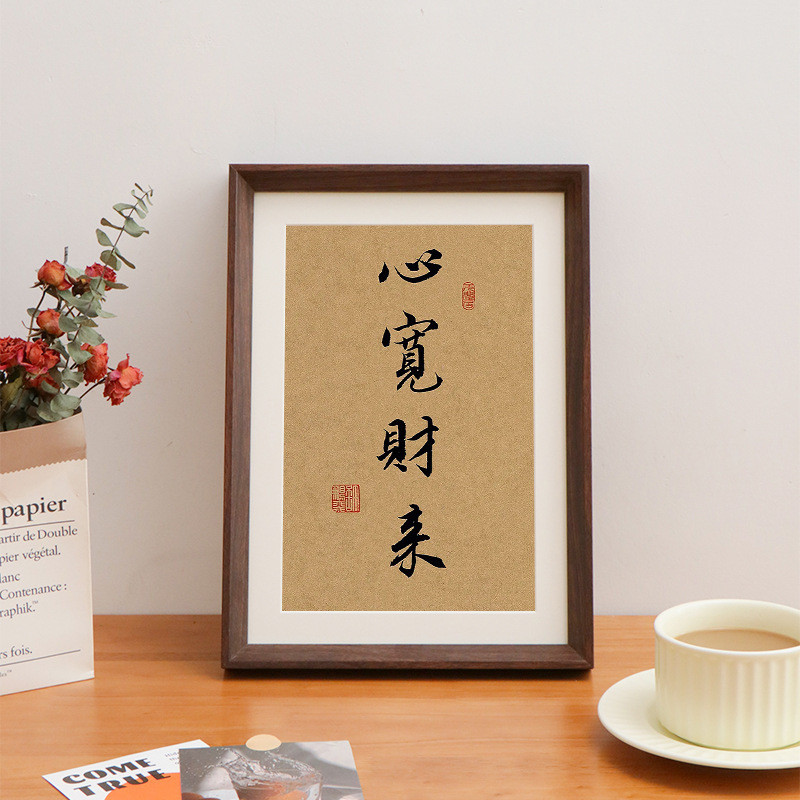 心寬財来
papier
artir de Double
pier végétal.
lanc
Contenance :
raphik.™
rs fois.
COME
TRUE